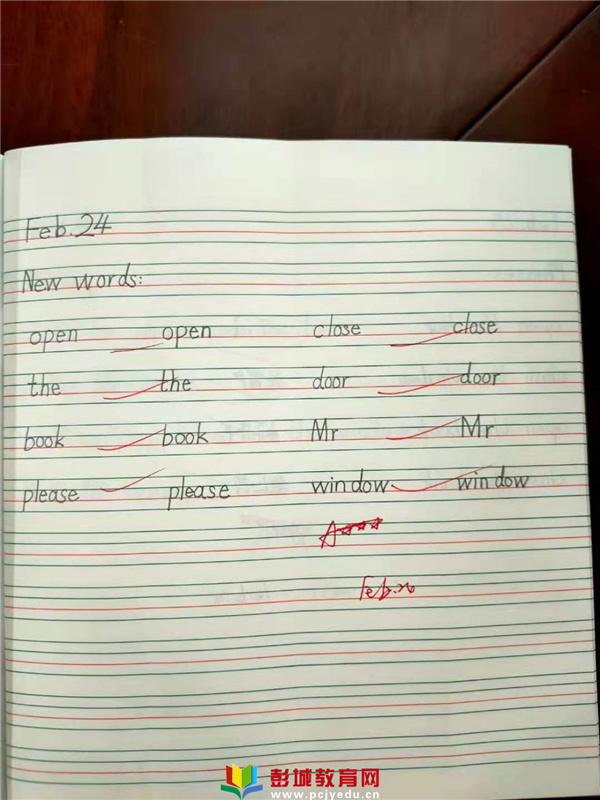 Feb.24
New words:
open open close close
the the door door
book book Mr Mr
please please window window
A☆☆☆☆
Feb.26
彭城教育网
www.pcjyedu.cn